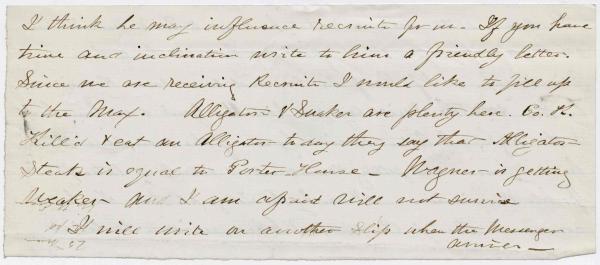 I think he may influence recruits for us. If you have
time and inclination write to him a friendly letter.
Since we are receiving Recruits I would like to fill up
to the Max. Alligators & Snakes are plenty here. Co. K.
Kill'd & eat an Alligator to day they say that Alligator
Steak is equal to Porter House – Wagner is getting
Weaker – and I am afraid will not survive
I will write on another slip when the Messenger
arrives –